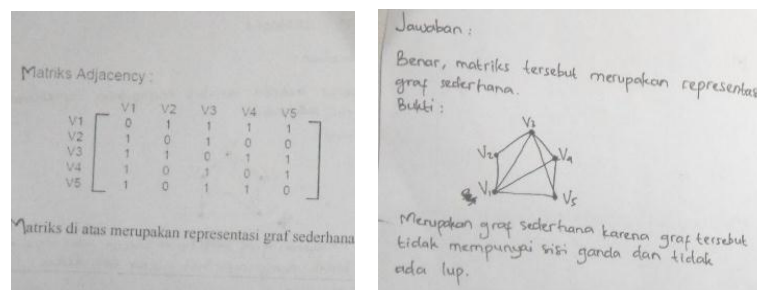 Matriks Adjacency :
V1 V2 V3 V4 V5
V1 0 1 1 1 1
V2 1 0 1 0 0
V3 1 1 0 1 1
V4 1 0 1 0 1
V5 1 0 1 1 0
Matriks di atas merupakan representasi graf sederhana
Jawaban :
Benar, matriks tersebut merupakan representas
graf sederhana.
Bukti :
V3
V2
V4
V1
V5
Merupakan graf sederhana karena graf tersebut
tidak mempunyai sisi ganda dan tidak
ada lup.